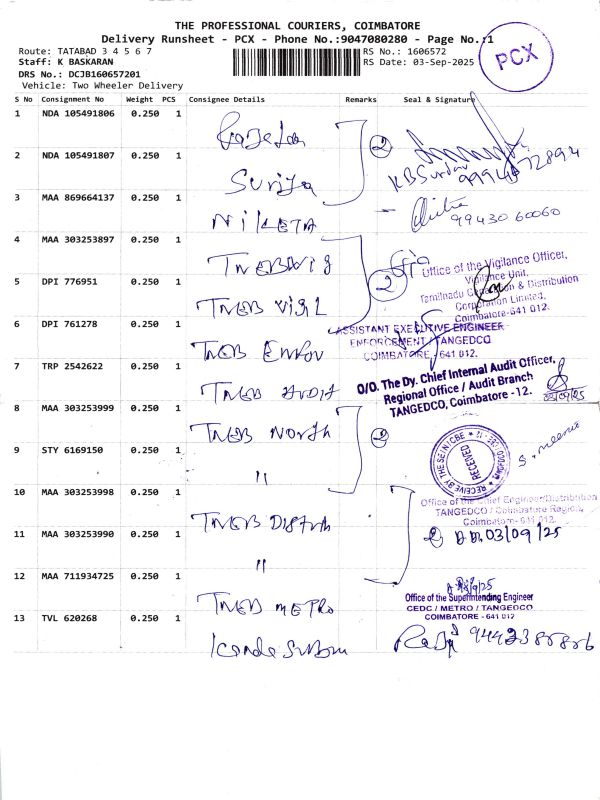 THE PROFESSIONAL COURIERS, COIMBATORE
Delivery Runsheet - PCX - Phone No.:9047080280 - Page No.:1
Route: TATABAD 3 4 5 6 7
RS No.: 1606572
Staff: K BASKARAN
RS Date: 03-Sep-2025
DRS No.: DCJB160657201
Vehicle: Two Wheeler Delivery
PCX
S No Consignment No Weight PCS Consignee Details Remarks Seal & Signature
1 NDA 105491806 0.250 1
2 NDA 105491807 0.250 1 Suriya 2
3 MAA 869664137 0.250 1 99430 60060
4 MAA 303253897 0.250 1 TNEB
5 DPI 776951 0.250 1 TNEB Vigl 2
Office of the Vigilance Officer,
Vigilance Unit,
Tamilnadu Generation & Distribution
Corporation Limited,
Coimbatore-641 012.
6 DPI 761278 0.250 1 TNEB Enfor
ASSISTANT EXECUTIVE ENGINEER
ENFORCEMENT / TANGEDCO
COIMBATORE, 641 012.
7 TRP 2542622 0.250 1 TNEB Audit
O/O. The Dy. Chief Internal Audit Officer,
Regional Office / Audit Branch
TANGEDCO, Coimbatore -12.
8 MAA 303253999 0.250 1 TNEB North 2
9 STY 6169150 0.250 1 "
RECEIVED
10 MAA 303253998 0.250 1 TNEB Distrb
Office of the Chief Engineer/Distribution
TANGEDCO / Coimbatore Region,
Coimbatore- 641 012.
11 MAA 303253990 0.250 1 "
2 03/09/25
12 MAA 711934725 0.250 1 TNEB METRO
Office of the Superintending Engineer
CEDC / METRO / TANGEDCO
COIMBATORE - 641 012
13 TVL 620268 0.250 1